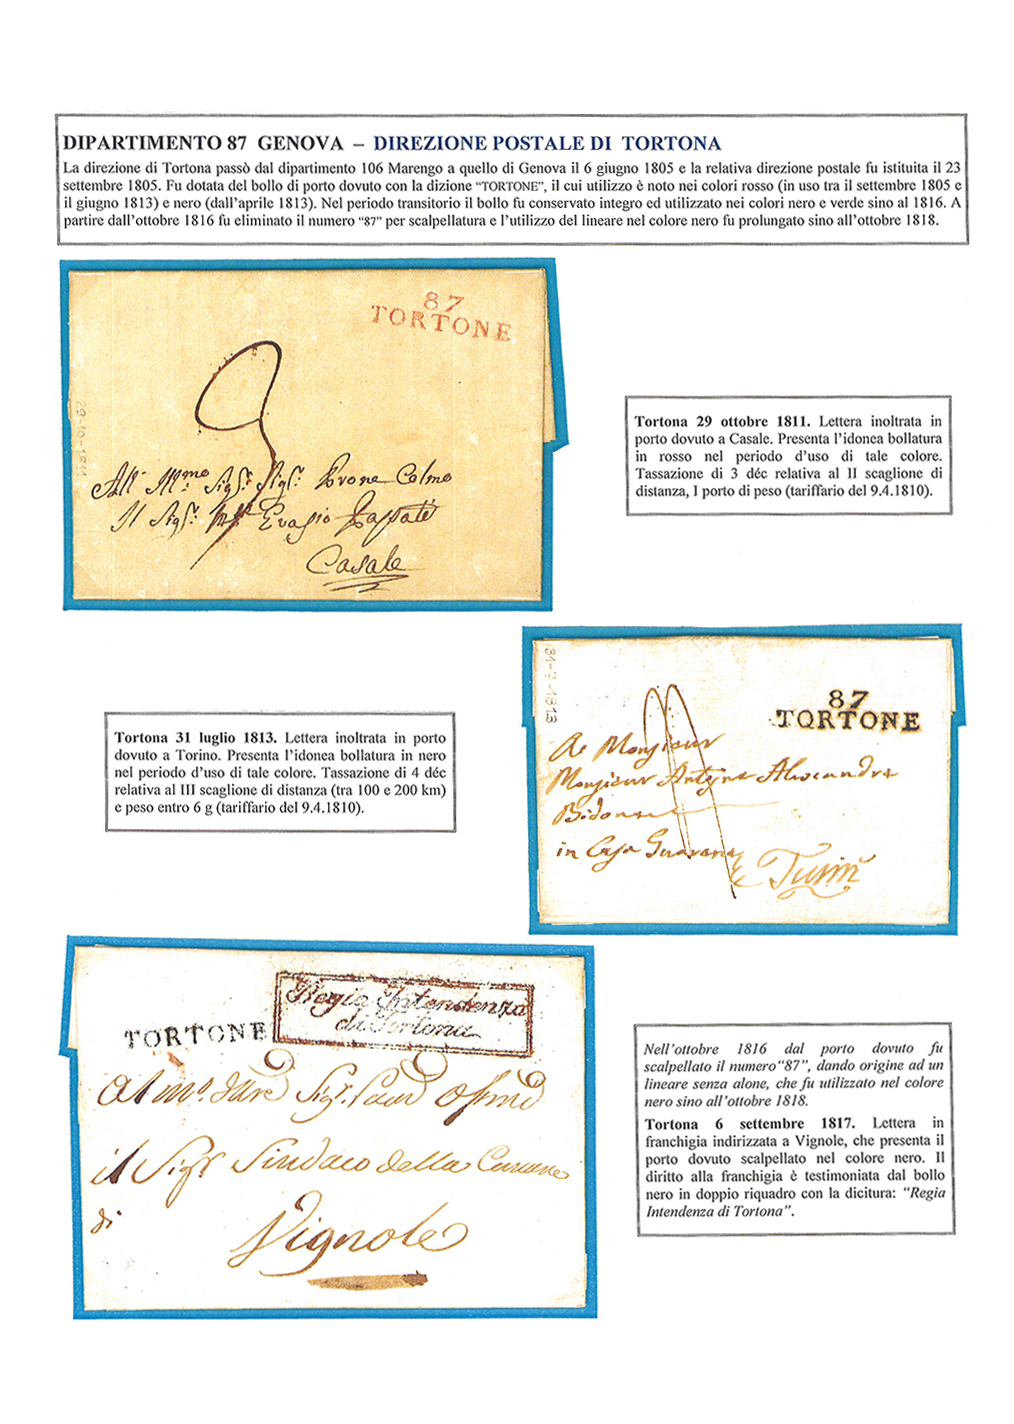 DIPARTIMENTO 87 GENOVA – DIREZIONE POSTALE DI TORTONA
La direzione di Tortona passò dal dipartimento 106 Marengo a quello di Genova il 6 giugno 1805 e la relativa direzione postale fu istituita il 23
settembre 1805. Fu dotata del bollo di porto dovuto con la dizione “TORTONE”, il cui utilizzo è noto nei colori rosso (in uso tra il settembre 1805 e
il giugno 1813) e nero (dall’aprile 1813). Nel periodo transitorio il bollo fu conservato integro ed utilizzato nei colori nero e verde sino al 1816. A
partire dall’ottobre 1816 fu eliminato il numero “87” per scalpellatura e l’utilizzo del lineare nel colore nero fu prolungato sino all’ottobre 1818.
87
TORTONE
29-10-1811
Casale
Tortona 29 ottobre 1811. Lettera inoltrata in
porto dovuto a Casale. Presenta l’idonea bollatura
in rosso nel periodo d’uso di tale colore.
Tassazione di 3 déc relativa al II scaglione di
distanza, I porto di peso (tariffario del 9.4.1810).
31-7-1813
87
TORTONE
A Monsieur
Monsieur
in Casa
Turin
Tortona 31 luglio 1813. Lettera inoltrata in porto
dovuto a Torino. Presenta l’idonea bollatura in nero
nel periodo d’uso di tale colore. Tassazione di 4 déc
relativa al III scaglione di distanza (tra 100 e 200 km)
e peso entro 6 g (tariffario del 9.4.1810).
TORTONE
Regia Intendenza
di Tortona
il Sigr Sindaco della Comune
di
Vignole
Nell’ottobre 1816 dal porto dovuto fu
scalpellato il numero“87”, dando origine ad un
lineare senza alone, che fu utilizzato nel colore
nero sino all’ottobre 1818.
Tortona 6 settembre 1817. Lettera in
franchigia indirizzata a Vignole, che presenta il
porto dovuto scalpellato nel colore nero. Il
diritto alla franchigia è testimoniata dal bollo
nero in doppio riquadro con la dicitura: “Regia
Intendenza di Tortona”.